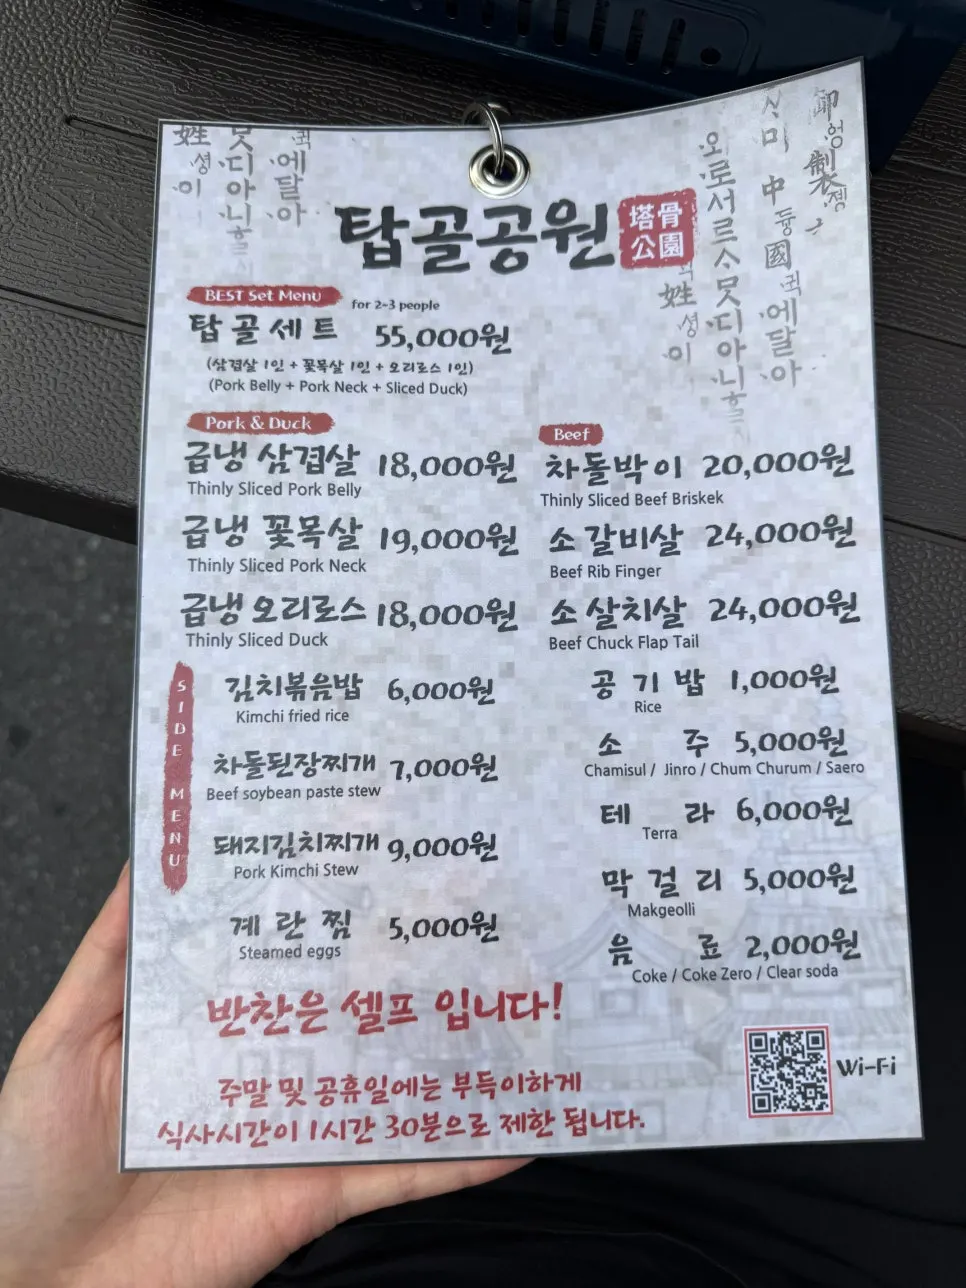 탑골공원
塔骨
公園
BEST Set Menu
for 2~3 people
탑골세트 55,000원
(삼겹살 1인 + 꽃목살 1인 + 오리로스 1인)
(Pork Belly + Pork Neck + Sliced Duck)
Pork & Duck
급냉 삼겹살 18,000원
Thinly Sliced Pork Belly
급냉 꽃목살 19,000원
Thinly Sliced Pork Neck
급냉 오리로스 18,000원
Thinly Sliced Duck
Beef
차돌박이 20,000원
Thinly Sliced Beef Briskek
소갈비살 24,000원
Beef Rib Finger
소살치살 24,000원
Beef Chuck Flap Tail
SIDE MENU
김치볶음밥 6,000원
Kimchi fried rice
차돌된장찌개 7,000원
Beef soybean paste stew
돼지김치찌개 9,000원
Pork Kimchi Stew
계란찜 5,000원
Steamed eggs
공기밥 1,000원
Rice
소주 5,000원
Chamisul / Jinro / Chum Churum / Saero
테라 6,000원
Terra
막걸리 5,000원
Makgeolli
음료 2,000원
Coke / Coke Zero / Clear soda
반찬은 셀프 입니다!
주말 및 공휴일에는 부득이하게
식사시간이 1시간 30분으로 제한 됩니다.
Wi-Fi